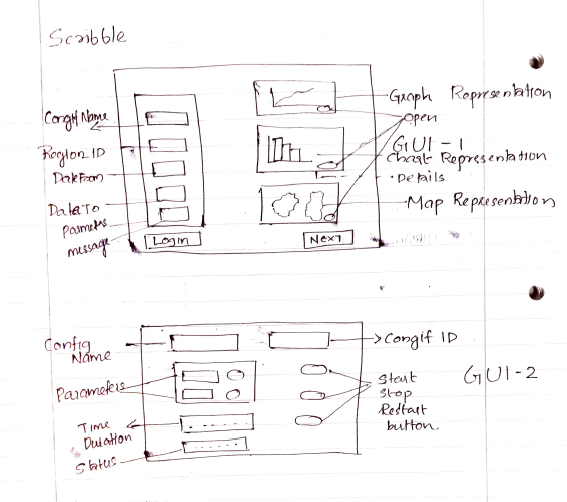 Scribble
Congif Name
Region ID
DateFrom
DataTo
parameters
message
Login
Next
Graph Representation
open
GUI-1
Chart Representation
• Details
• Map Representation
Config
Name
Parameters
Time
Duration
Status
Congif ID
Start
Stop
Restart
button.
GUI-2